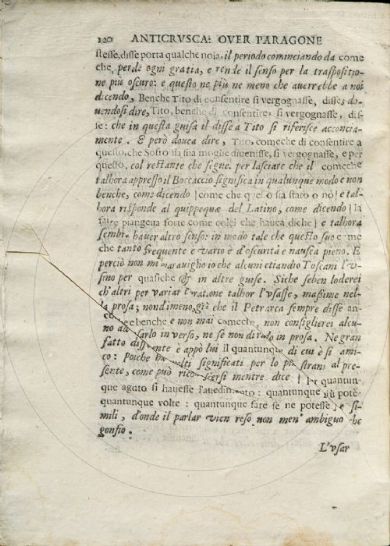 120 ANTICRVSCA: OVER PARAGONE
stesse, disse porta qualche noia, il periodo cominciando da come
che, perde ogni gratia, e rende il senso per la traspositio-
ne piu oscuro: e questo ne piu ne meno che auerrebbe a noi
dicendo, Benche Tito di consentire si vergognasse, disse, do-
uendosi dire, Tito, benche di consentire si vergognasse, dis-
se: che in questa guisa il disse a Tito si riferisce acconcia-
mente. E però douea dire, Tito, comeche di consentire a
questo, che Sofronia sua moglie diuenisse, si vergognasse, e per
questo, col restante che segue, per lasciare che il comeche
talhora appresso il Boccaccio significa in qualunque modo e non
benche, come dicendo [come che questo sia stato o no] e tal-
hora risponde al quippequæ del Latino, come dicendo [la
faire piangeua forte come colei che hauea dich] e talhora
sembra hauer altro senso: in modo tale che questo suo come
che tanto frequente e vario è d'oscurità e nausea pieno. E
perciò non mi marauiglio che alcuni ettando Toscani l'v-
sino per quasiche & in altre guise. Siche ben loderei
ch'altri per variar l'oratione talhor l'vsasse, massime nel-
la prosa; nondimeno, già che il Petrarca sempre disse an-
co benche e mai comeche, non consiglierei alcu-
no ad vsarlo in verso, ne se non di rado in prosa. Ne gran
fatto differente è appò lui il quantunque di cui è si ami-
co: Poiche ha molti significati per lo più strani al pre-
sente, come può riconoscersi mentre dice [Per quantun-
que aguto si hauesse l'auedimento: quantunque più potè
quantunque volte: quantunque fare se ne potesse] e si-
mili, d'onde il parlar vien reso non men' ambiguo che
gonfio.
L'vsar